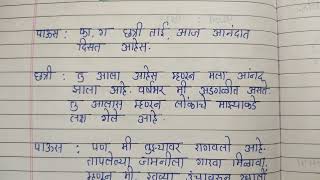 पाऊस : का, ग छत्री ताई, आज आनंदात
दिसत आहेस.
छत्री : तु आला आहेस म्हणून मला आनंद
झाला आहे. वर्षभर मी अडगळीत असते.
तु आलास म्हणून लोकांचे माझ्याकडे
लक्ष गेले आहे.
पाऊस : पण मी तुझ्यावर रागावलो आहे.
तापलेल्या जमिनीला गारवा मिळावा,
म्हणून मी इतक्या उंचावरून